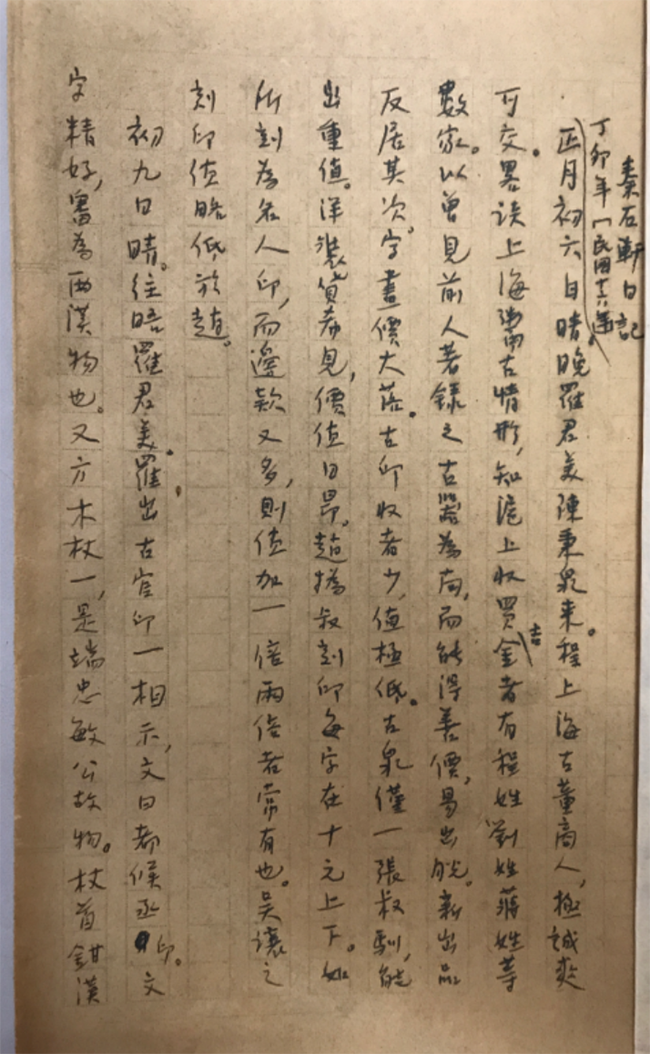 秦石軒日記
丁卯年（民國十六年）
正月初六日晴。晚羅君美陳秉泉来。程上海古董商人，極誠爽
可交。畧谈上海鬻古情形，知滬上收買吉金者有程姓劉姓蔣姓等
數家。以曾見前人著錄之古器為商，而能得善價，易出脱。新出品
反居其次。字畫價大落。古印收者少，值極低。古泉僅一張叔馴，能
出重值。洋装貸希見，價值日昂。趙撝叔刻印每字在十元上下。如
所刻為名人印，而邊款又多，則值加一倍兩倍者常有也。吴讓之
刻印值略低於趙。
初九日晴。往晤羅君美。羅出古官印一相示，文曰都候丞印。文
字精好，審為西漢物也。又方木杖一，是端忠敏公故物。杖首鉗漢